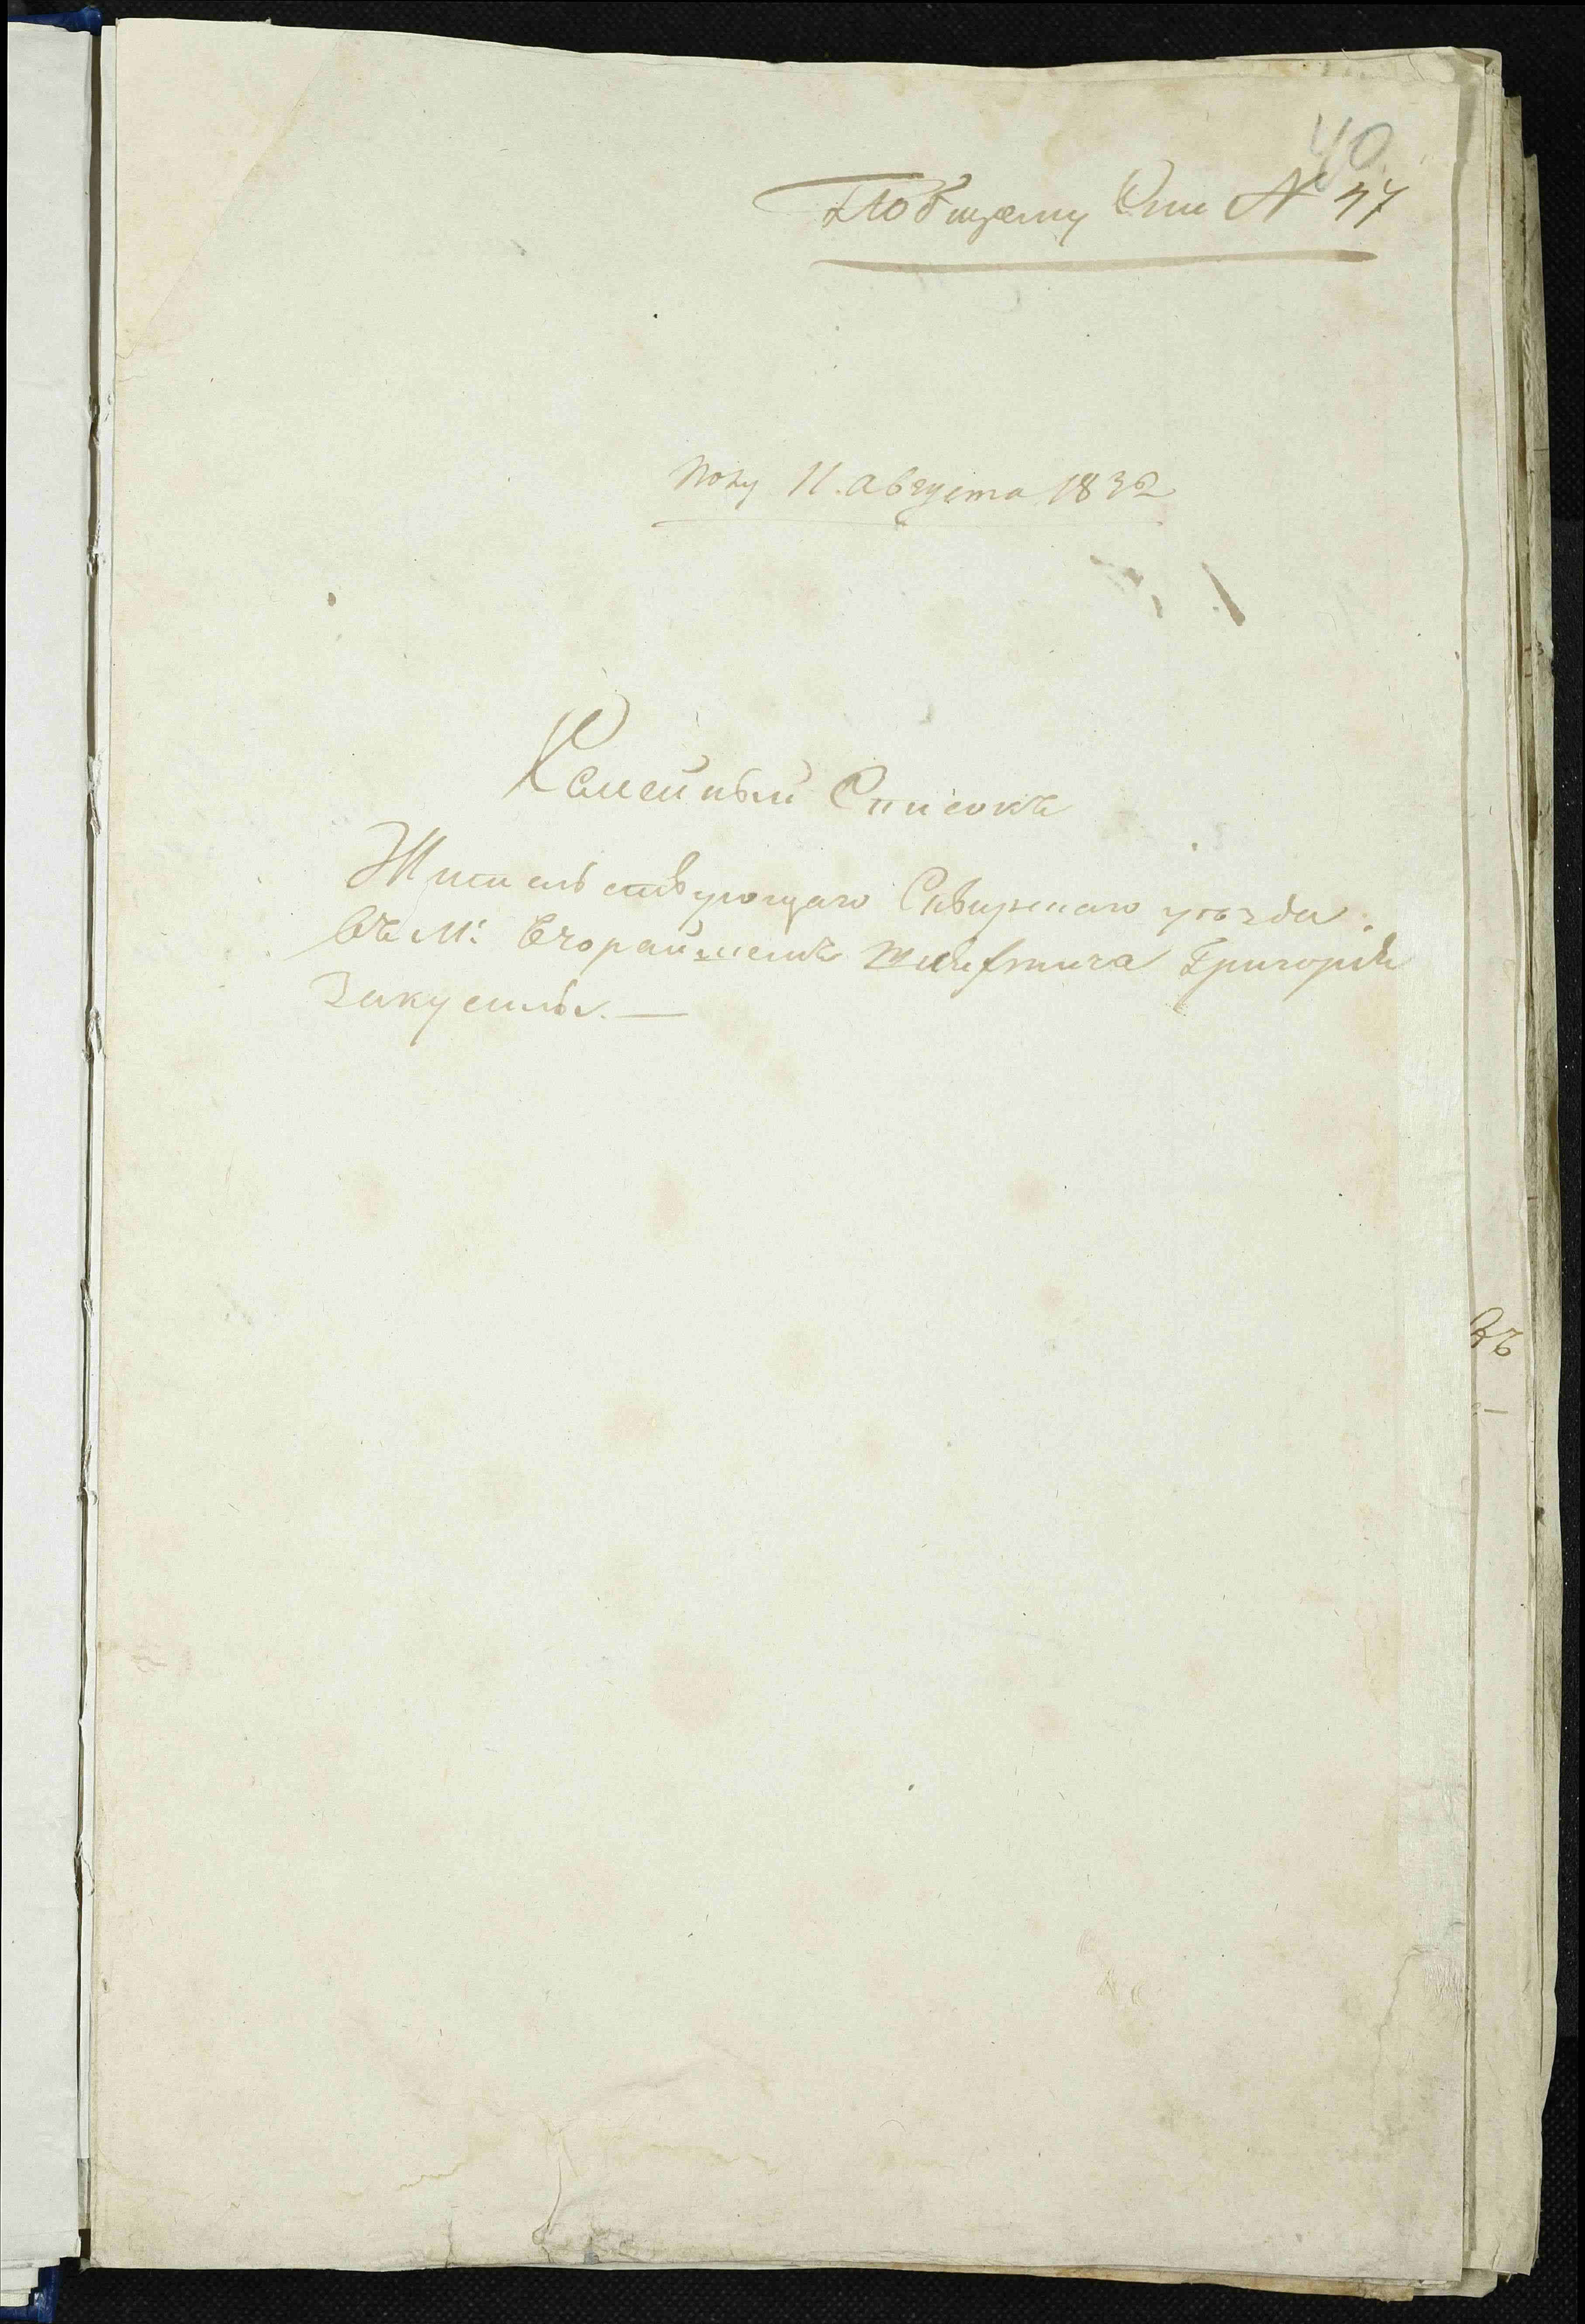 40
По общему Опи № 47
полу 11. августа 1832
Семейный Списокъ
Жительствующаго Сквирскаго уезда
въ М: Вчорайшемъ Шляхтича Григорія
Закусилы. —
въ